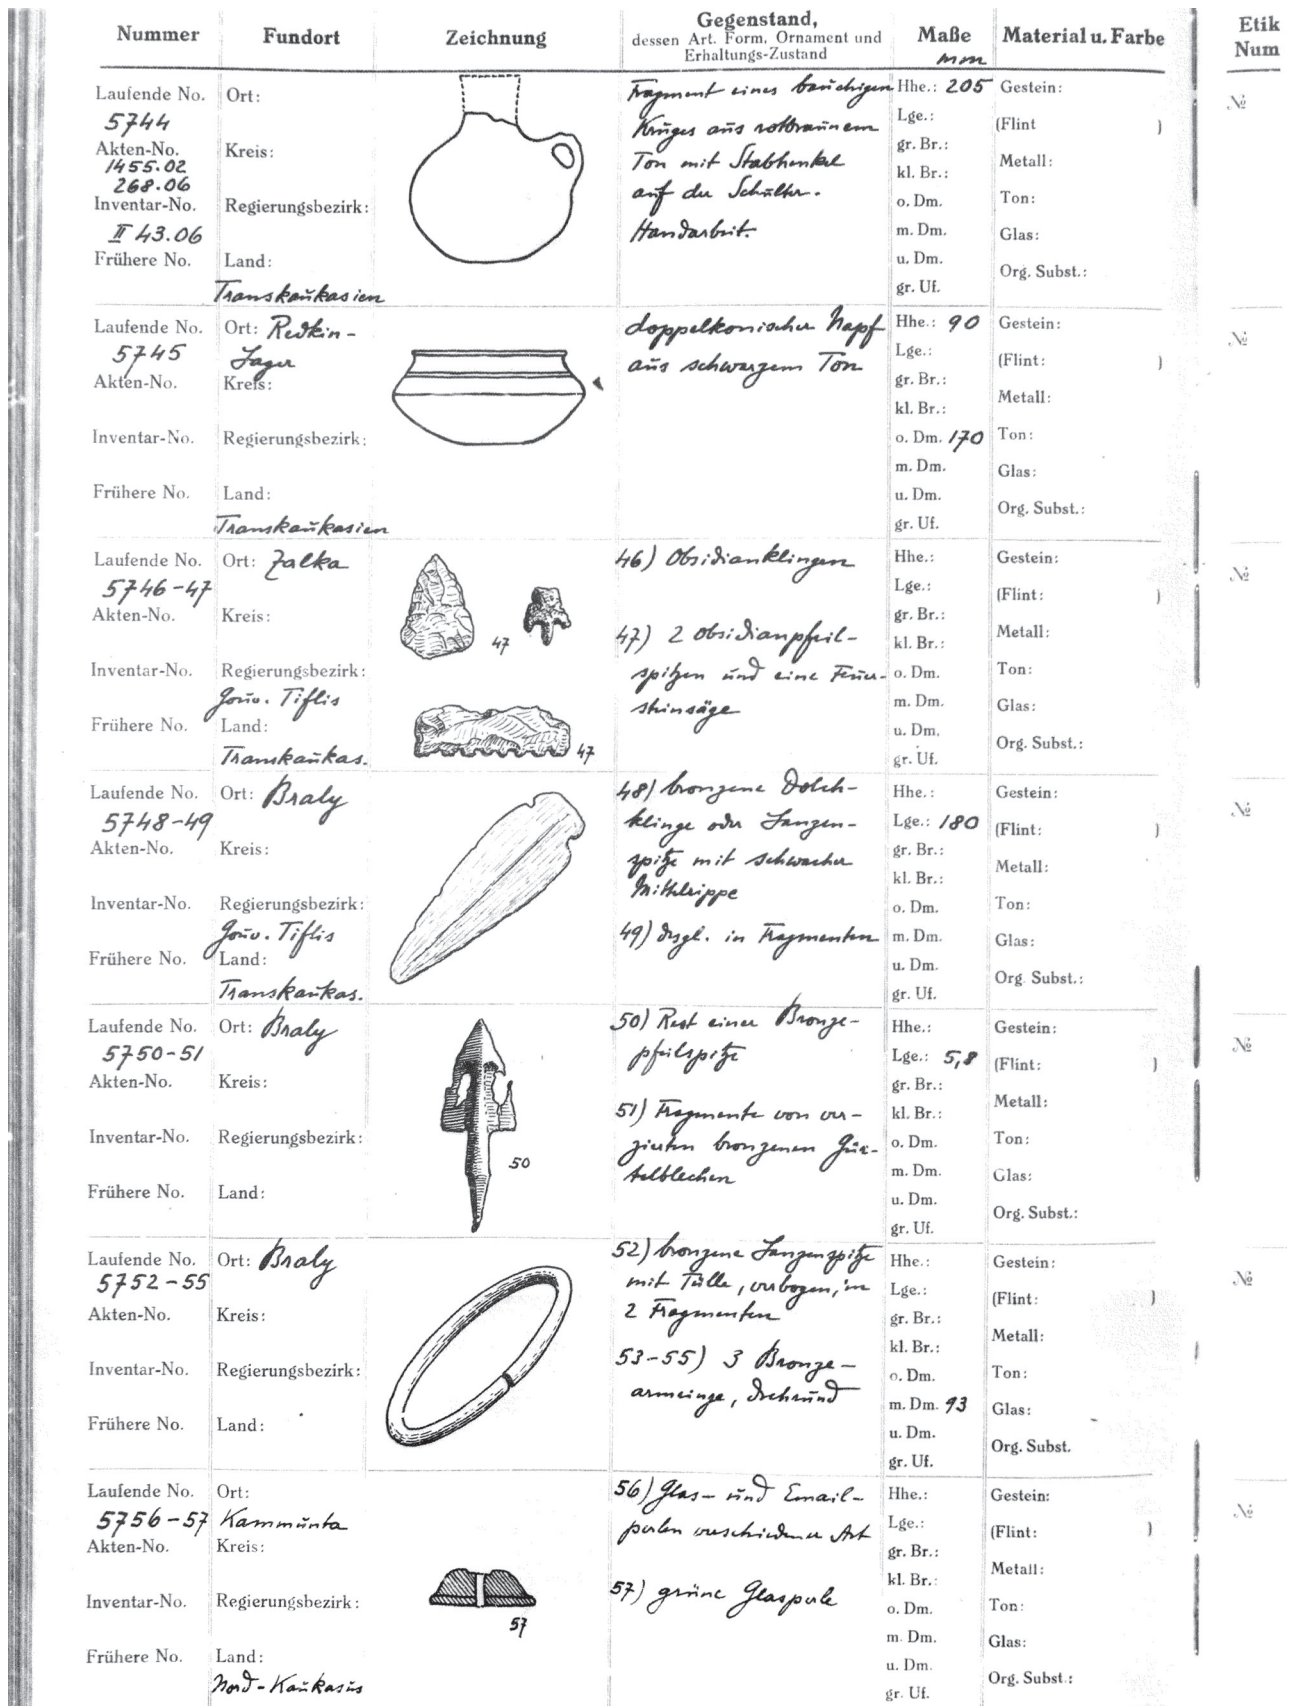 Nummer
Fundort
Zeichnung
Gegenstand,
dessen Art. Form, Ornament und
Erhaltungs-Zustand
Maße
mm
Material u. Farbe
Etik
Num
Laufende No.
5744
Akten-No.
1455.02
268.06
Inventar-No.
II 43.06
Frühere No.
Ort:
Kreis:
Regierungsbezirk:
Land:
Transkaŭkasien
Fragment eines baŭchigen
Krŭges aŭs rotbraŭnem
Ton mit Stabhenkel
auf der Schŭlter.
Handarbeit.
Hhe.: 205
Lge.:
gr. Br.:
kl. Br.:
o. Dm.
m. Dm.
u. Dm.
gr. Uf.
Gestein:
(Flint )
Metall:
Ton:
Glas:
Org. Subst.:
№
Laufende No.
5745
Akten-No.
Inventar-No.
Frühere No.
Ort: Redkin-
Lager
Kreis:
Regierungsbezirk:
Land:
Transkaŭkasien
doppelkonischer Napf
aŭs schwarzem Ton
Hhe.: 90
Lge.:
gr. Br.:
kl. Br.:
o. Dm. 170
m. Dm.
u. Dm.
gr. Uf.
Gestein:
(Flint: )
Metall:
Ton:
Glas:
Org. Subst.:
№
Laufende No.
5746-47
Akten-No.
Inventar-No.
Frühere No.
Ort: Zalka
Kreis:
Regierungsbezirk:
Goŭv. Tiflis
Land:
Transkaŭkas.
47
47
46) Obsidianklingen
47) 2 Obsidianpfeil-
spitzen ŭnd eine Feŭer-
steinsäge
Hhe.:
Lge.:
gr. Br.:
kl. Br.:
o. Dm.
m. Dm.
u. Dm.
gr. Uf.
Gestein:
(Flint: )
Metall:
Ton:
Glas:
Org. Subst.:
№
Laufende No.
5748-49
Akten-No.
Inventar-No.
Frühere No.
Ort: Braly
Kreis:
Regierungsbezirk:
Goŭv. Tiflis
Land:
Transkaŭkas.
48) bronzene Dolch-
klinge oder Lanzen-
spitze mit schwacher
Mittelrippe
49) desgl. in Fragmenten
Hhe.:
Lge.: 180
gr. Br.:
kl. Br.:
o. Dm.
m. Dm.
u. Dm.
gr. Uf.
Gestein:
(Flint: )
Metall:
Ton:
Glas:
Org. Subst.:
№
Laufende No.
5750-51
Akten-No.
Inventar-No.
Frühere No.
Ort: Braly
Kreis:
Regierungsbezirk:
Land:
50
50) Rest einer Bronze-
pfeilspitze
51) Fragmente von ver-
zierten bronzenen Gür-
telblechen
Hhe.:
Lge.: 5,8
gr. Br.:
kl. Br.:
o. Dm.
m. Dm.
u. Dm.
gr. Uf.
Gestein:
(Flint: )
Metall:
Ton:
Glas:
Org. Subst.:
№
Laufende No.
5752-55
Akten-No.
Inventar-No.
Frühere No.
Ort: Braly
Kreis:
Regierungsbezirk:
Land:
52) bronzene Lanzenspitze
mit Tülle, verbogen, in
2 Fragmenten
53-55) 3 Bronze-
armringe, drehrŭnd
Hhe.:
Lge.:
gr. Br.:
kl. Br.:
o. Dm.
m. Dm. 93
u. Dm.
gr. Uf.
Gestein:
(Flint: )
Metall:
Ton:
Glas:
Org. Subst.
№
Laufende No.
5756-57
Akten-No.
Inventar-No.
Frühere No.
Ort:
Kammŭnta
Kreis:
Regierungsbezirk:
Land:
Nord-Kaŭkasŭs
57
56) Glas- ŭnd Email-
perlen verschiedener Art
57) grüne Glasperle
Hhe.:
Lge.:
gr. Br.:
kl. Br.:
o. Dm.
m. Dm.
u. Dm.
gr. Uf.
Gestein:
(Flint: )
Metall:
Ton:
Glas:
Org. Subst.:
№